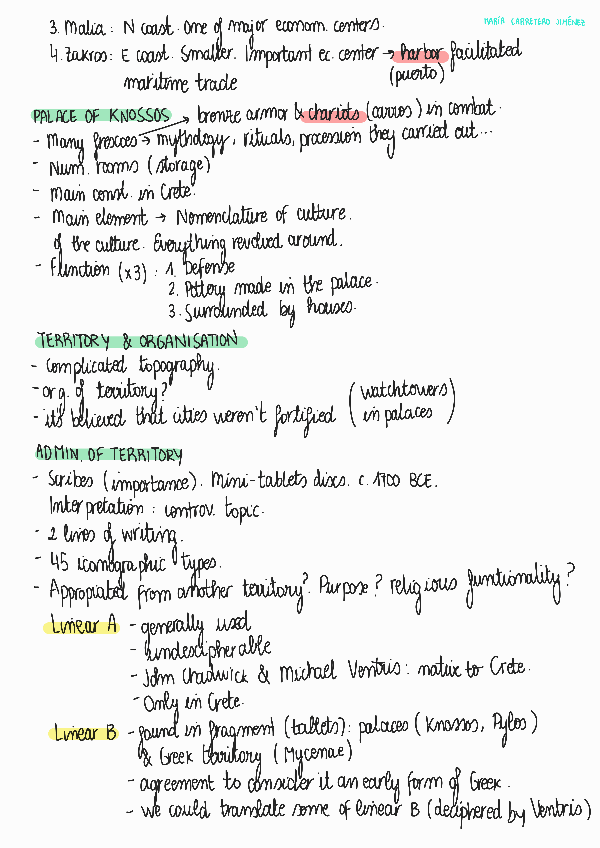 MARÍA CARRETERO JIMÉNEZ
3. Malia: N coast. One of major econom. centers.
4. Zakros: E coast. Smaller. Important ec. center → harbor facilitated
(puerto)
maritime trade
PALACE OF KNOSSOS
bronze armor & chariots (carros) in combat.
- Many frescoes → mythology, rituals, procession they carried out...
- Num. rooms (storage)
- Main const. in Crete.
- Main element → Nomenclature of culture.
of the culture. Everything revolved around.
- Function (x3): 1. Defense
2. Pottery made in the palace.
3. Surrounded by houses.
TERRITORY & ORGANISATION
- Complicated topography.
- org. of territory?
- it's believed that cities weren't fortified (watchtowers
in palaces)
ADMIN. OF TERRITORY
- Scribes (importance). Mini-tablets discs. c. 1700 BCE.
Interpretation: controv. topic.
- 2 lines of writing.
- 45 iconographic types.
- Appropiated from another territory? Purpose? religious funtionality?
Linear A - generally used
- Undescipherable
- John Chadwick & Michael Ventris: native to Crete.
- Only in Crete.
Linear B - found in fragment (tablets): palaces (Knossos, Pylos)
& Greek territory (Mycenae)
- agreement to consider it an early form of Greek.
- we could translate some of linear B (deciphered by Ventris)